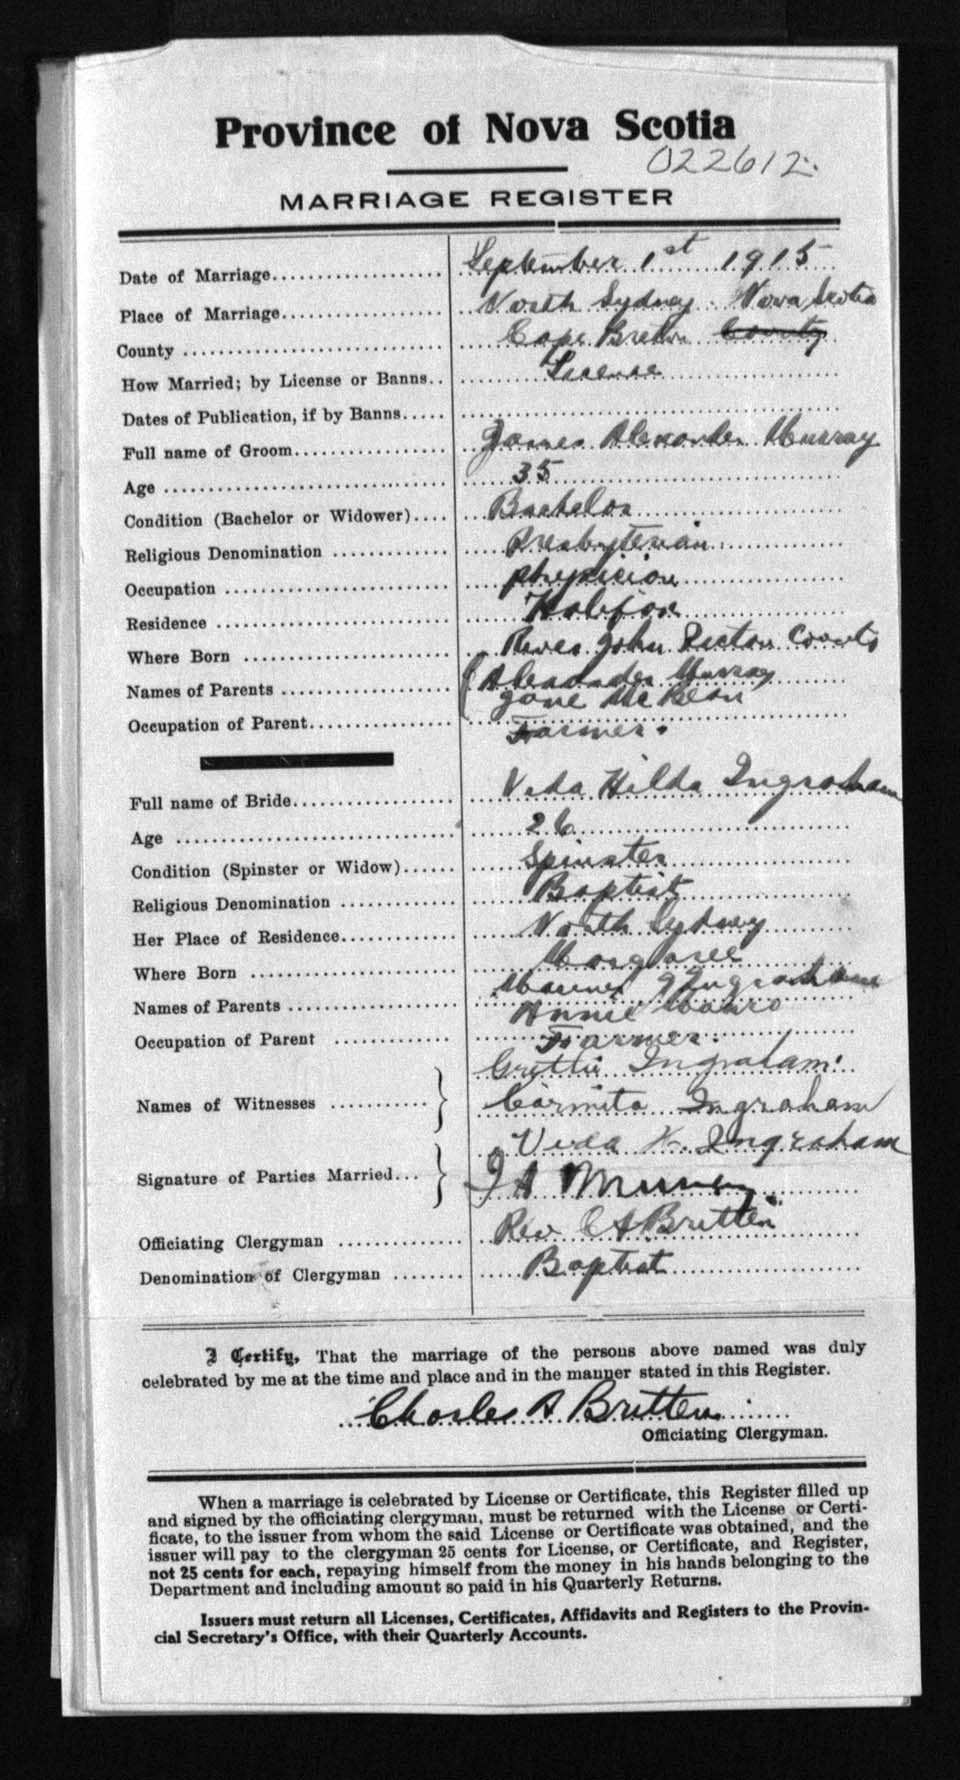 Province of Nova Scotia
022612
MARRIAGE REGISTER
Date of Marriage.................... September 1st 1915
Place of Marriage................... North Sydney Nova Scotia
County ............................. Cape Breton County
How Married; by License or Banns.. License
Dates of Publication, if by Banns.....
Full name of Groom.................. James Alexander Murray
Age ................................ 35
Condition (Bachelor or Widower).... Bachelor
Religious Denomination ............. Presbyterian
Occupation ......................... physician
Residence .......................... Halifax
Where Born ......................... River John Pictou County
Names of Parents ................... Alexander Murray
Jane McBean
Occupation of Parent................ Farmer.
Full name of Bride.................. Veda Hilda Ingraham
Age ................................ 26
Condition (Spinster or Widow)...... Spinster
Religious Denomination ............. Baptist
Her Place of Residence............. North Sydney
Where Born ......................... Margaree
Names of Parents ................... Ingraham
Annie
Occupation of Parent ............... Farmer.
Names of Witnesses ........... Grettie Ingraham
Carmita Ingraham
Signature of Parties Married... Veda H. Ingraham
J A Murray
Officiating Clergyman .............. Rev C A Britten
Denomination of Clergyman ........ Baptist
I Certify, That the marriage of the persons above named was duly
celebrated by me at the time and place and in the manner stated in this Register.
Charles A Britten
Officiating Clergyman.
When a marriage is celebrated by License or Certificate, this Register filled up
and signed by the officiating clergyman, must be returned with the License or Certi-
ficate, to the issuer from whom the said License or Certificate was obtained, and the
issuer will pay to the clergyman 25 cents for License, or Certificate, and Register,
not 25 cents for each, repaying himself from the money in his hands belonging to the
Department and including amount so paid in his Quarterly Returns.
Issuers must return all Licenses, Certificates, Affidavits and Registers to the Provin-
cial Secretary's Office, with their Quarterly Accounts.